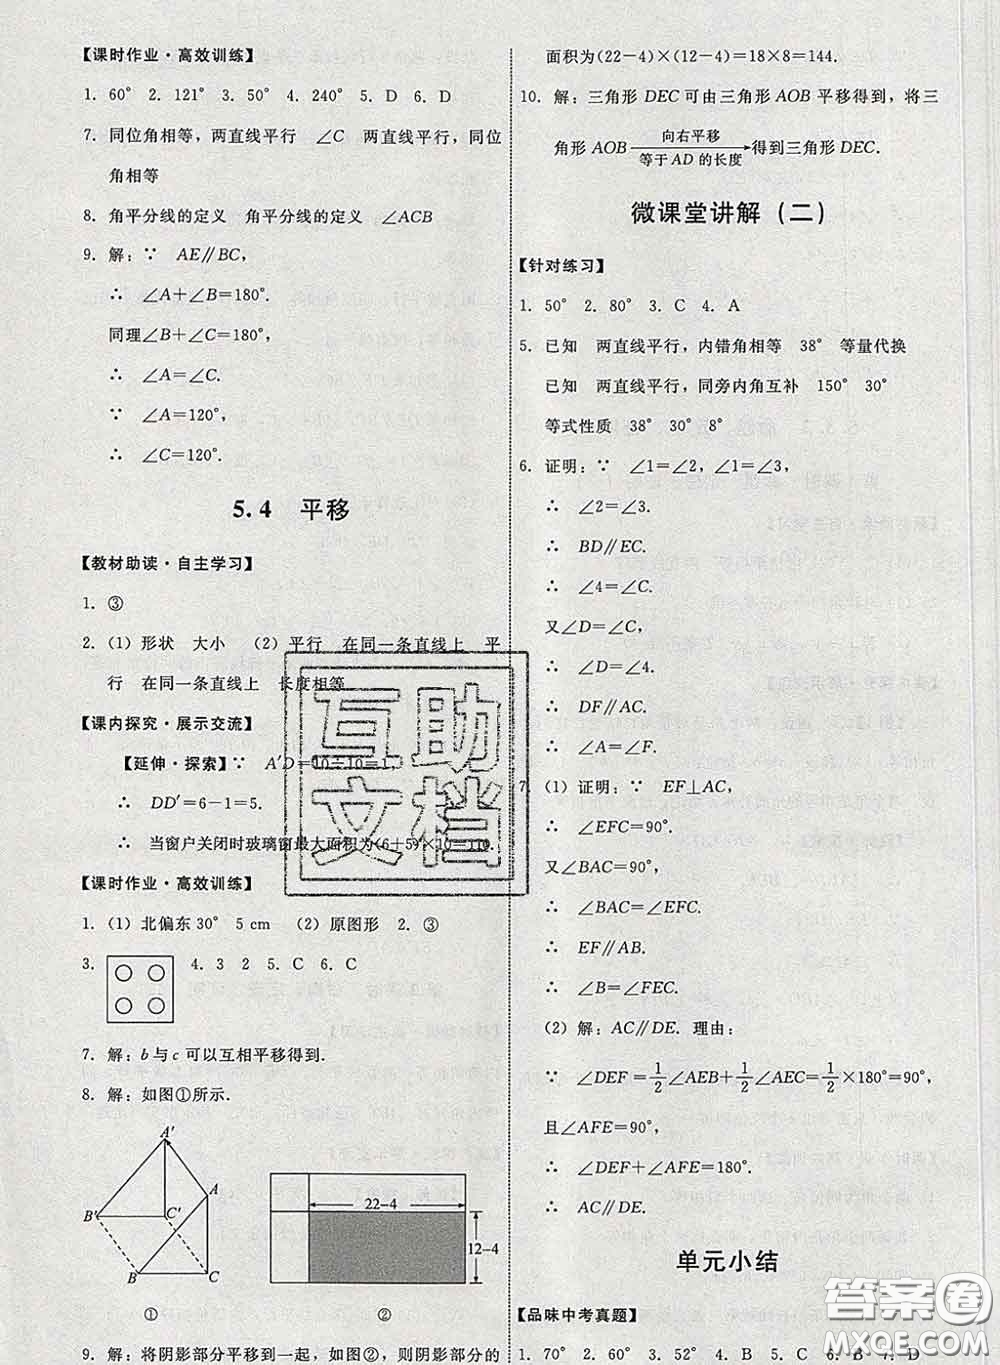 【课时作业·高效训练】
1. 60° 2. 121° 3. 50° 4. 240° 5. D 6. D
7. 同位角相等，两直线平行 ∠C 两直线平行，同位
角相等
8. 角平分线的定义 角平分线的定义 ∠ACB
9. 解：∵ AE∥BC，
∴ ∠A+∠B=180°.
同理∠B+∠C=180°，
∴ ∠A=∠C.
∵ ∠A=120°，
∴ ∠C=120°.
5.4 平移
【教材助读·自主学习】
1. ③
2. (1) 形状 大小 (2) 平行 在同一条直线上 平
行 在同一条直线上 长度相等
【课内探究·展示交流】
【延伸·探索】∵ A′D=10÷10=1，
∴ DD′=6-1=5.
∴ 当窗户关闭时玻璃窗最大面积为(6+5)×10=110.
【课时作业·高效训练】
1. (1) 北偏东30° 5 cm (2) 原图形 2. ③
3. 4. 3 2 5. C 6. C
7. 解：b与c可以互相平移得到.
8. 解：如图①所示.
A′
A
B′
C′
B
C
①
22-4
12-4
②
9. 解：将阴影部分平移到一起，如图②，则阴影部分的
面积为(22-4)×(12-4)=18×8=144.
10. 解：三角形 DEC 可由三角形 AOB 平移得到，将三
角形 AOB 向右平移 等于 AD 的长度 得到三角形 DEC.
微课堂讲解（二）
【针对练习】
1. 50° 2. 80° 3. C 4. A
5. 已知 两直线平行，内错角相等 38° 等量代换
已知 两直线平行，同旁内角互补 150° 30°
等式性质 38° 30° 8°
6. 证明：∵ ∠1=∠2，∠1=∠3，
∴ ∠2=∠3.
∴ BD∥EC.
∴ ∠4=∠C.
又∠D=∠C，
∴ ∠D=∠4.
∴ DF∥AC.
∴ ∠A=∠F.
7. (1) 证明：∵ EF⊥AC，
∴ ∠EFC=90°.
又∠BAC=90°，
∴ ∠BAC=∠EFC.
∴ EF∥AB.
∴ ∠B=∠FEC.
(2) 解：AC∥DE. 理由：
∵ ∠DEF=1/2∠AEB+1/2∠AEC=1/2×180°=90°，
且∠AFE=90°，
∴ ∠DEF+∠AFE=180°.
∴ AC∥DE.
单元小结
【品味中考真题】
1. 70° 2. 60° 3. 52° 4. B 5. B 6. A 7. D
互助
文档
答案圈
MXQE.COM